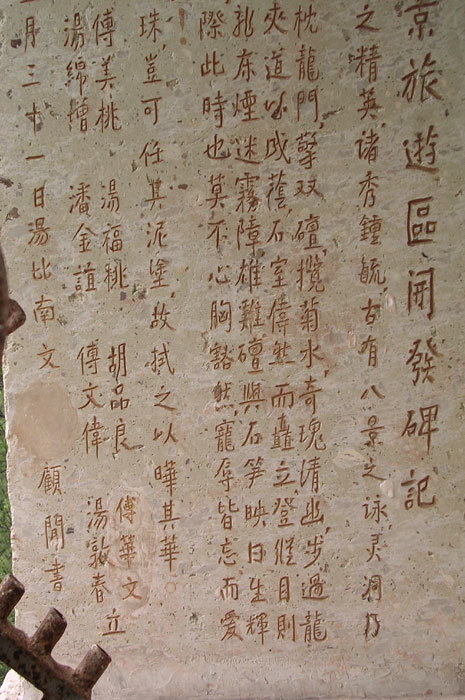 京旅遊區開發碑記
之精英诸秀鍾毓，古有八景之詠，灵洞乃
枕龍門，擎双礵，攬菊水，奇瑰清幽，步過龍
夾道以成蔭，石室偉然而矗立，登繼目則
东煙迷霧障，雄雞礵與石笋映日生輝
際此時也莫不心胸豁然，寵辱皆忘，而愛
珠，豈可任其泥塗，故拭之以曄其華。
傅美桃 湯福桃 胡品良 傅華文 立
湯綿增 潘金誼 傅文偉 湯敦春
月三十一日湯比南文 顧聞書